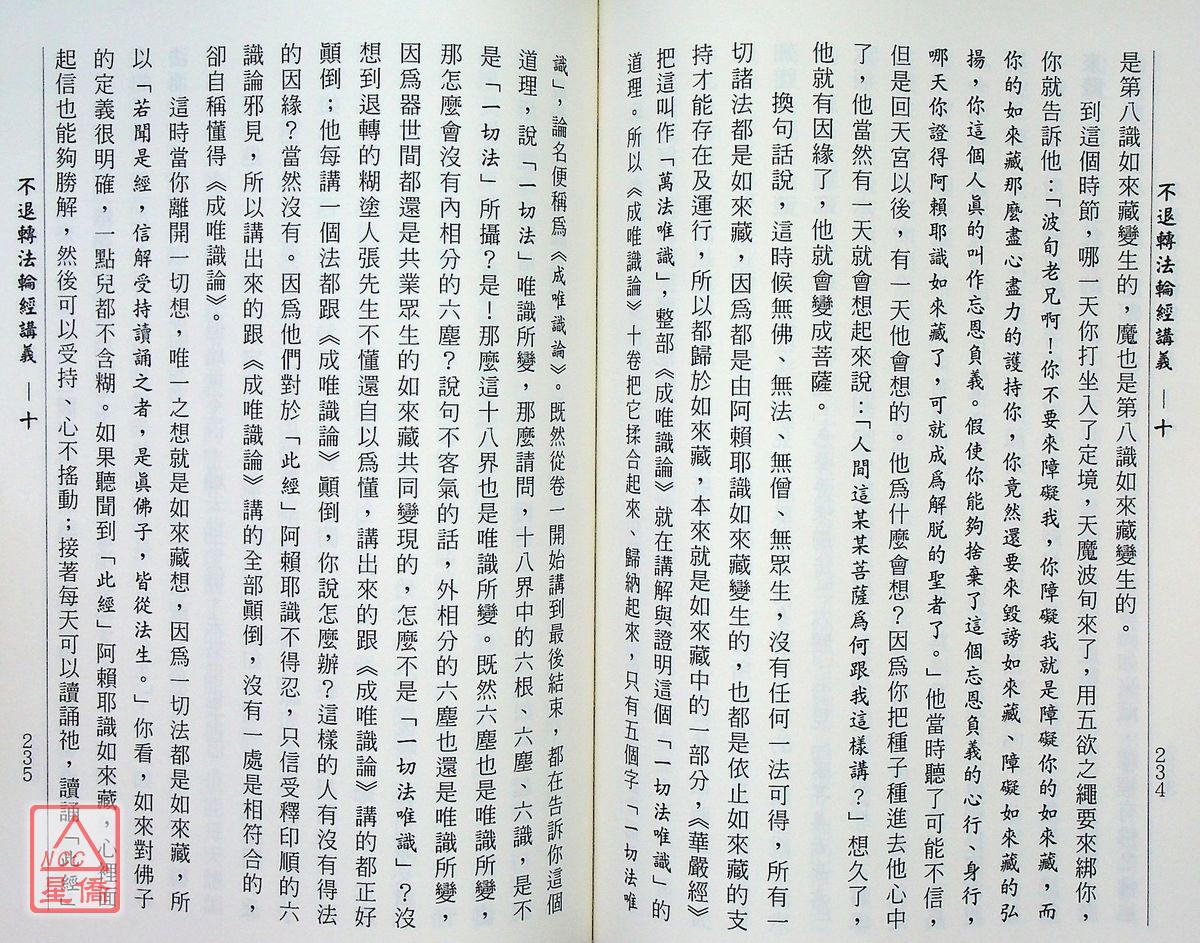 不退轉法輪經講義 — 十
234
是第八識如來藏變生的，魔也是第八識如來藏變生的。
到這個時節，哪一天你打坐入了定境，天魔波旬來了，用五欲之繩要來綁你，
你就告訴他：「波旬老兄啊！你不要來障礙我，你障礙我就是障礙你的如來藏，而
你的如來藏那麼盡心盡力的護持你，你竟然還要來毀謗如來藏、障礙如來藏的弘
揚，你這個人真的叫作忘恩負義。假使你能夠捨棄了這個忘恩負義的心行、身行，
哪天你證得阿賴耶識如來藏了，可就成為解脫的聖者了。」他當時聽了可能不信，
但是回天宮以後，有一天他會想的。他為什麼會想？因為你把種子種進去他心中
了，他當然有一天就會想起來說：「人間這某某菩薩為何跟我這樣講？」想久了，
他就有因緣了，他就會變成菩薩。
換句話說，這時候無佛、無法、無僧、無眾生，沒有任何一法可得，所有一
切諸法都是如來藏，因為都是由阿賴耶識如來藏變生的，也都是依止如來藏的支
持才能存在及運行，所以都歸於如來藏，本來就是如來藏中的一部分，《華嚴經》
把這叫作「萬法唯識」，整部《成唯識論》就在講解與證明這個「一切法唯識」的
道理。所以《成唯識論》十卷把它揉合起來、歸納起來，只有五個字「一切法唯
識」，論名便稱為《成唯識論》。既然從卷一開始講到最後結束，都在告訴你這個
道理，說「一切法」唯識所變，那麼請問，十八界中的六根、六塵、六識，是不
是「一切法」所攝？是！那麼這十八界也是唯識所變。既然六塵也是唯識所變，
那怎麼會沒有內相分的六塵？說句不客氣的話，外相分的六塵也還是唯識所變，
因為器世間都還是共業眾生的如來藏共同變現的，怎麼不是「一切法唯識」？沒
想到退轉的糊塗人張先生不懂還自以為懂，講出來的跟《成唯識論》講的都正好
顛倒；他每講一個法都跟《成唯識論》顛倒，你說怎麼辦？這樣的人有沒有得法
的因緣？當然沒有。因為他們對於「此經」阿賴耶識不得忍，只信受釋印順的六
識論邪見，所以講出來的跟《成唯識論》講的全部顛倒，沒有一處是相符合的，
卻自稱懂得《成唯識論》。
這時當你離開一切想，唯一之想就是如來藏想，因為一切法都是如來藏，所
以「若聞是經，信解受持讀誦之者，是真佛子，皆從法生。」你看，如來對佛子
的定義很明確，一點兒都不含糊。如果聽聞到「此經」阿賴耶識如來藏，心裡面
起信也能夠勝解，然後可以受持、心不搖動；接著每天可以讀誦祂，讀誦「此經」
不退轉法輪經講義 — 十
235
NCC
星僑